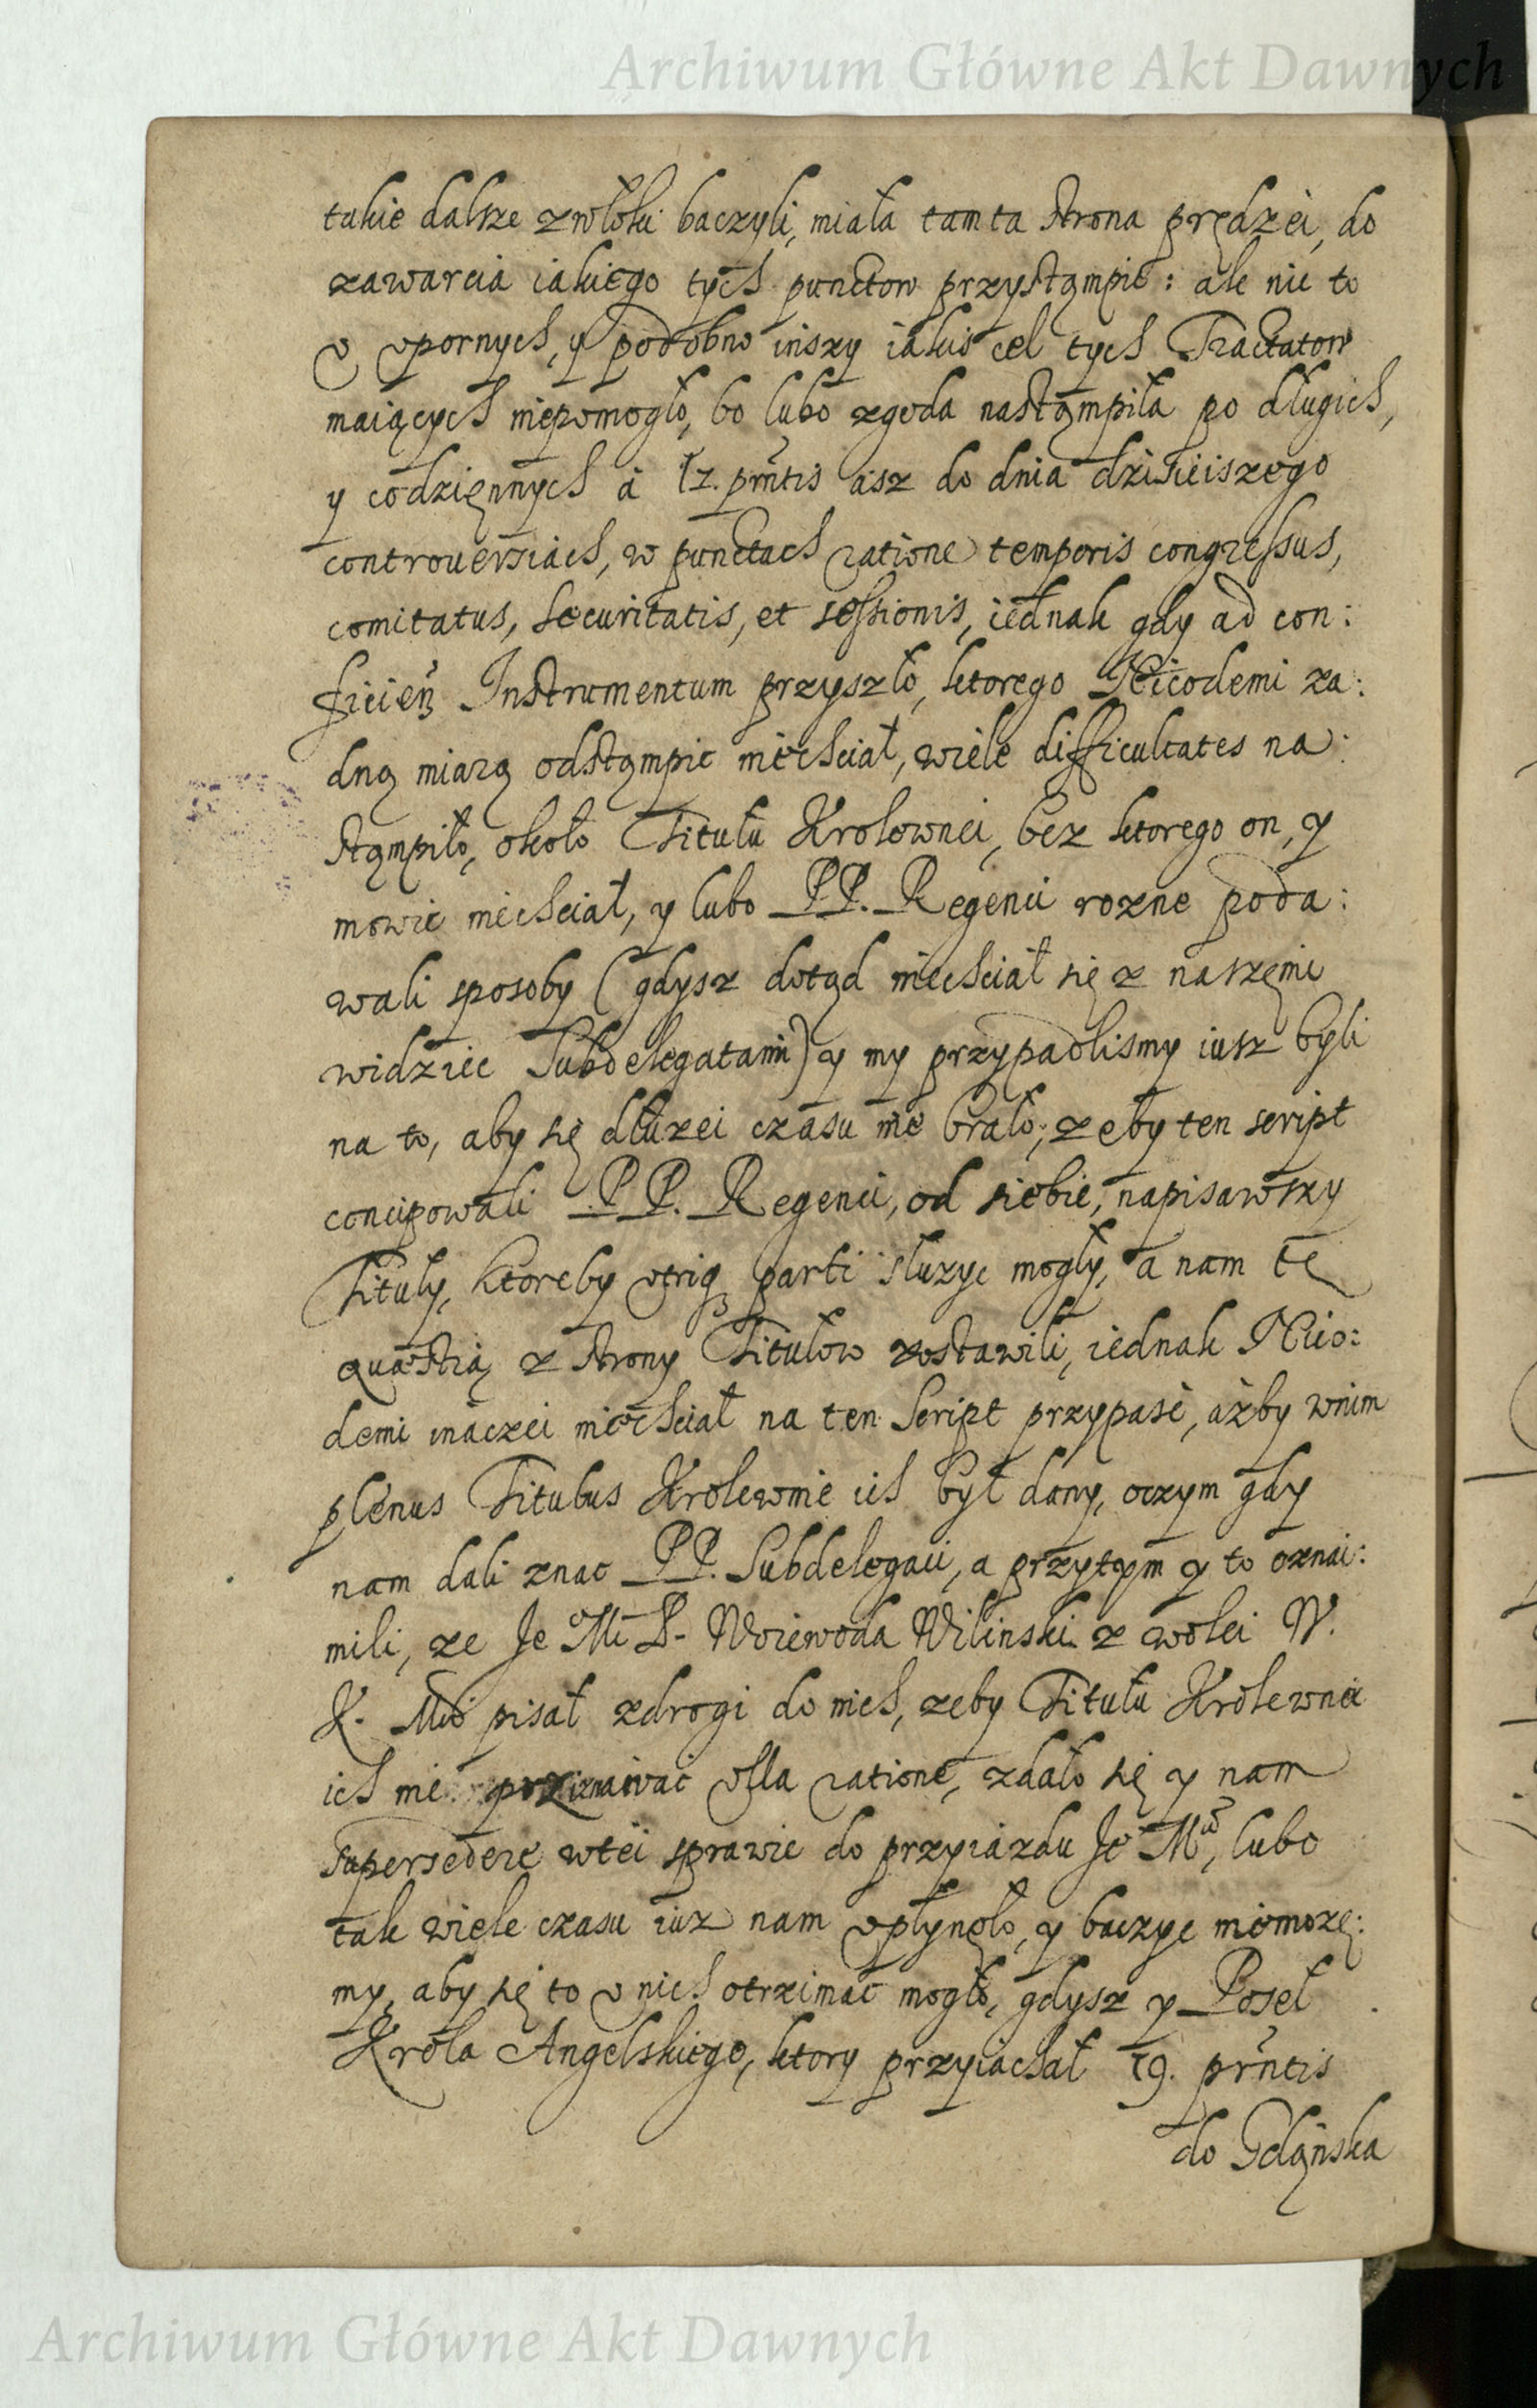 Archiwum Główne Akt Dawnych
takie dalsze zwłoki baczyli, miała tam ta strona prędzei, do
zawarcia iakiego tych punctow przystąmpić: ale nic to
v vpornych, y podobno inszy iakis cel tych Tractatow
maiących niepomogło, bo lubo zgoda nastąmpiła po długich,
y codzięnnych à 12. prñtis asz do dnia dzisieiszego
controuersiach, w punctach ratione temporis congressus,
comitatus, securitatis, et sessionis, iednak gdy ad con:
ficień Instrumentum przyszło, ktorego Nicodemi za:
dną miarą odstąmpic niechciał, wiele difficultates na:
stąmpiło, około Titułu Krolownei, bez ktorego on, y
mowic niechciał, y lubo PP. Regenci rozne poda:
wali sposoby (gdysz dotąd niechciał się z naszęmi
widziec Subdelegatami) y my przypadlismy iusz byli
na to, aby się dłuzei czasu nie brało, zeby ten script
concipowali PP. Regenci, od siebie, napisawszy
Tituły, ktoreby vtriq parti słuzyc mogły, a nam tę
quæstią z strony Titułow zostawili, iednak Nico:
demi inaczei niechciał na ten Script przypasć, ażby wnim
plenus Titulus Krolewnie ich był dany, oczym gdy
nam dali znac PP. Subdelegaci, a przytym y to oznai:
mili, ze Je Mć P. Woiewoda Wilinski z wolei W.
K. Mci pisał zdrogi do nich, zeby Titułu Krolewnei
ich nie prziznawac vlla ratione, zdało się y nam
supersedere wtei sprawie do przyiazdu Je Mci, lubo
tak wiele czasu iuz nam vpłynęło, y baczyc niemozę:
my, aby się to v nich otrzimać mogło, gdysz y Poseł
Krola Angelskiego, ktory przyiachał 19. prñtis
do Gdąnska
Archiwum Główne Akt Dawnych